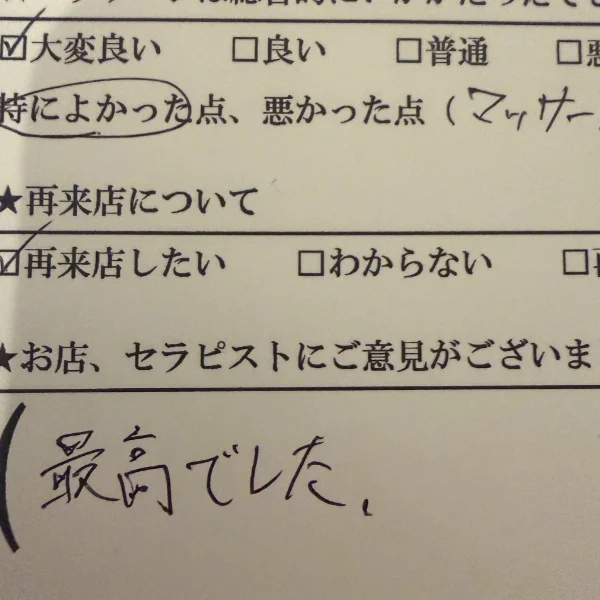 ☑大変良い □良い □普通 □悪
特によかった点、悪かった点（マッサー
★再来店について
☑再来店したい □わからない □再
★お店、セラピストにご意見がございま
（最高でした、